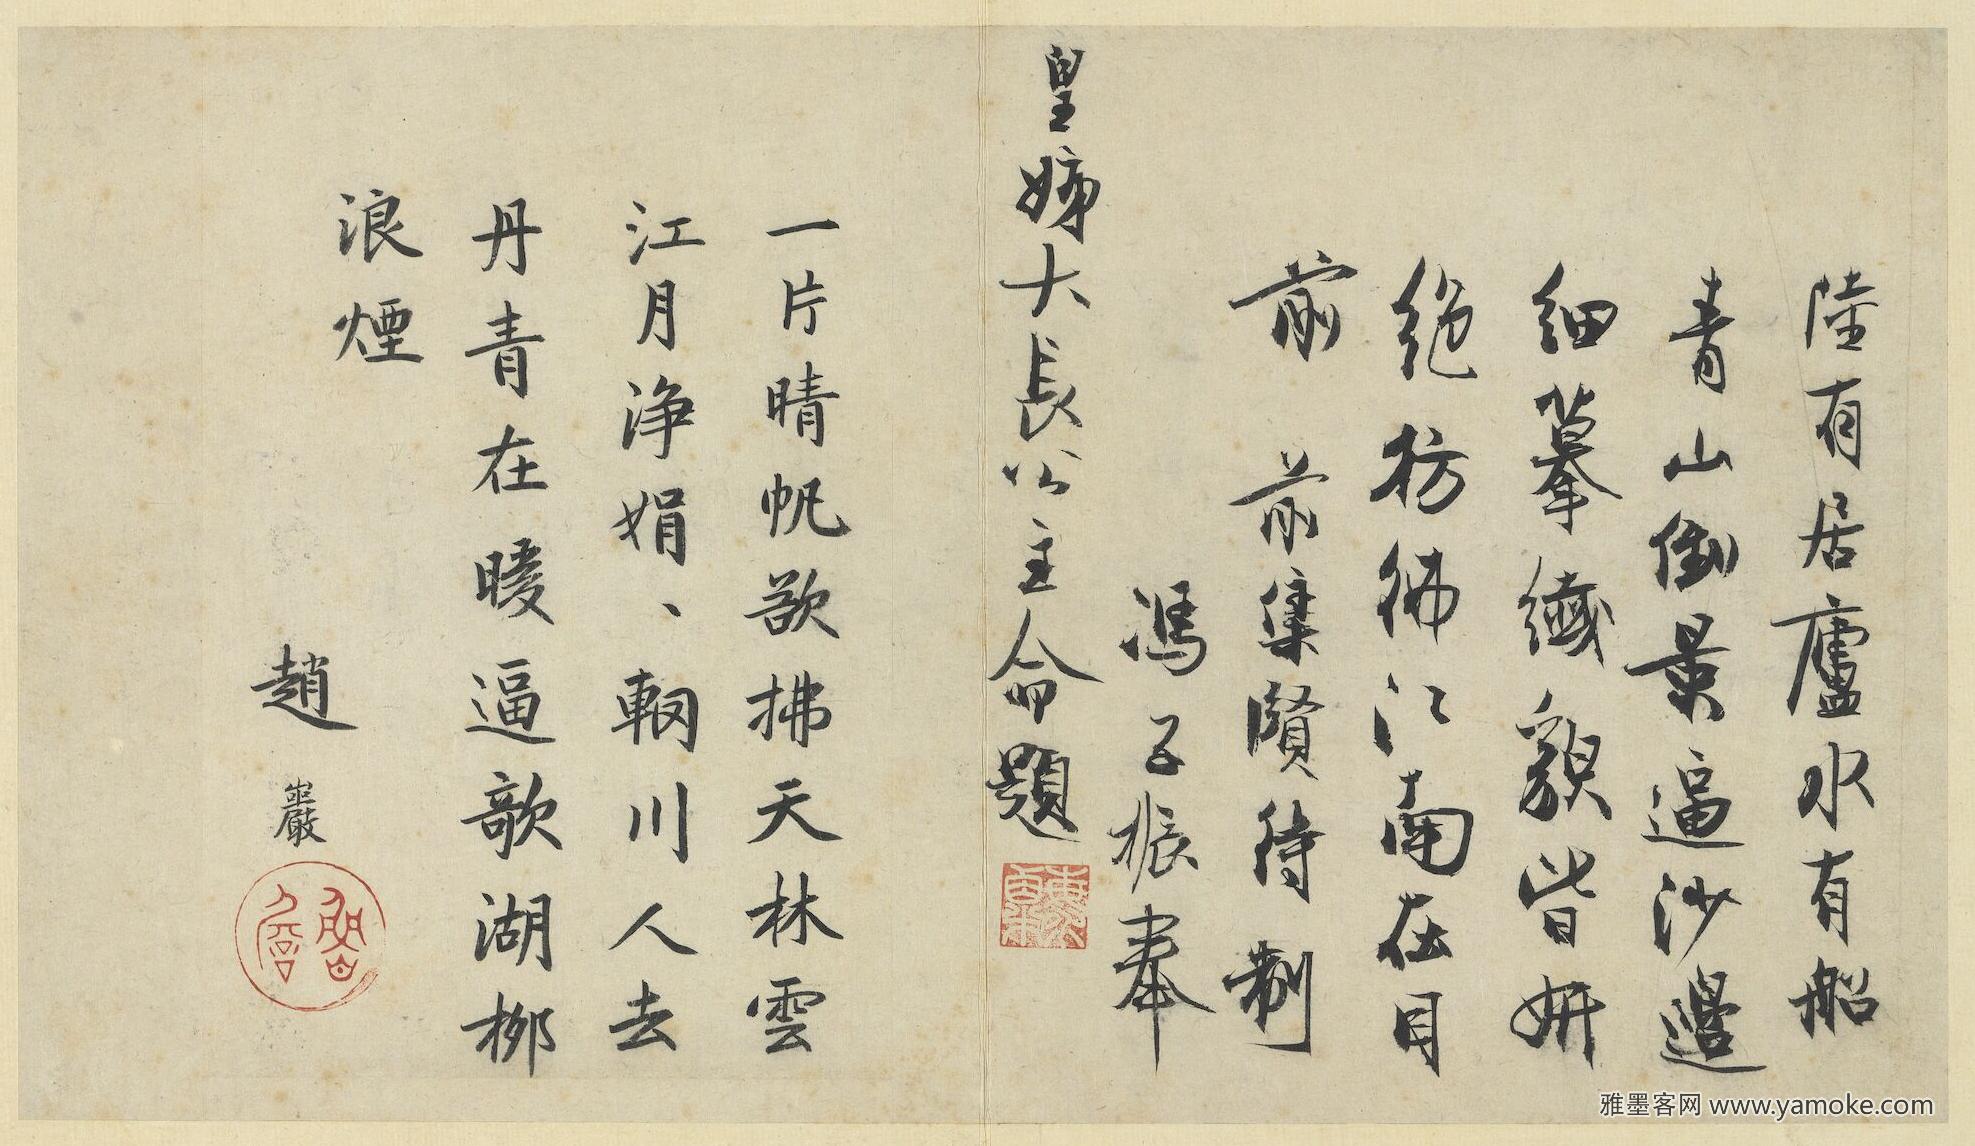 陸有居廬水有船
青山倒景逼沙邊
細摹纖貌皆妍
絕彷彿江南在目
前 前集賢待制
馮子振奉
皇姊大長公主命題
一片晴帆欲拂天林雲
江月淨娟、輞川人去
丹青在暖逼歌湖柳
浪煙
趙巖
雅墨客网 www.yamoke.com